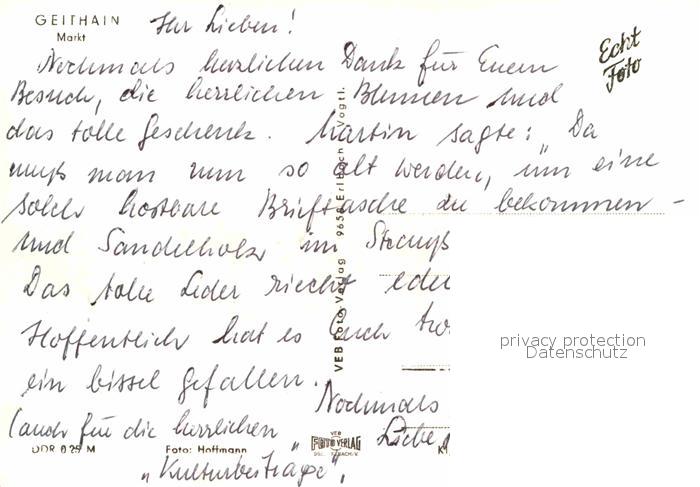 GEITHAIN
Markt
Echt
Foto
Ihr Lieben!
Nochmals herzlichen Dank für Euern
Besuch, die herrlichen Blumen und
das tolle Geschenk. Martin sagte: "Da
muß man nun so alt werden, um eine
solch kostbare Brieftasche zu bekommen -
und Sandelholz im Strauß
Das tolle Leder riecht
Hoffentlich hat es Euch
ein bissel gefallen.
Nochmals
(auch für die herrlichen
"Kulturbeiträge",
VEB Foto-Verlag 9659 Erlbach Vogtl.
privacy protection
Datenschutz
DDR 0.25 M
Foto: Hoffmann
VEB
FOTO VERLAG